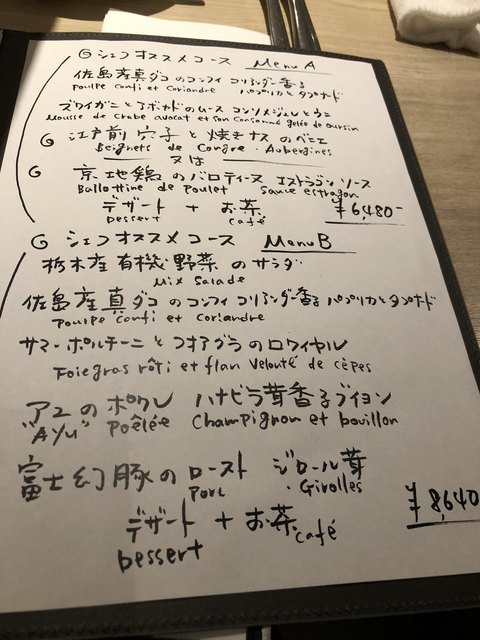 G シェフオススメコース Menu A
佐島産真ダコのコンフィ コリアンダー香る
Poulpe confi et Coriandre パプリカとタプナード
ズワイガニとアボカドのムース コンソメジュレとウニ
Mousse de Crabe avocat et son Consommé gelée de oursin
G 江戸前 穴子と焼きナスのベニエ
Beignets de Congre・Aubergines
又は
G 京地鶏のバロティーヌ エストラゴンソース
Ballottine de Poulet Sauce estragon
デザート + お茶 ¥6,480-
Dessert café
G シェフオススメコース Menu B
栃木産有機野菜のサラダ
Mix salade
佐島産真ダコのコンフィ コリアンダー香る パプリカとタプナード
Poulpe confi et Coriandre
サマーポルチーニとフォアグラのロワイヤル
Foie gras rôti et flan Velouté de cèpes
アユのポワレ ハナビラ茸香るブイヨン
"AYU" Poêlée Champignon et bouillon
富士幻豚のロースト ジロール茸
Porc ・Girolles
デザート + お茶 ¥8,640
Dessert café